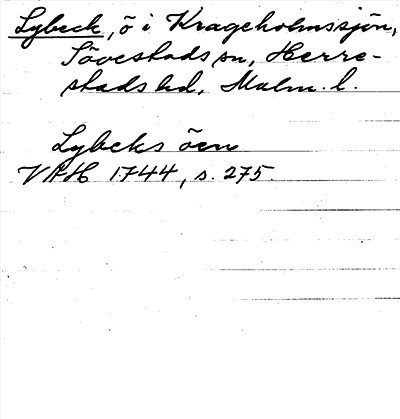 Lybeck, ö i Krageholmssjön,
Sövestads sn, Herre-
stads hd, Malm. l.
Lybecks öen
VAH 1744, s. 275.